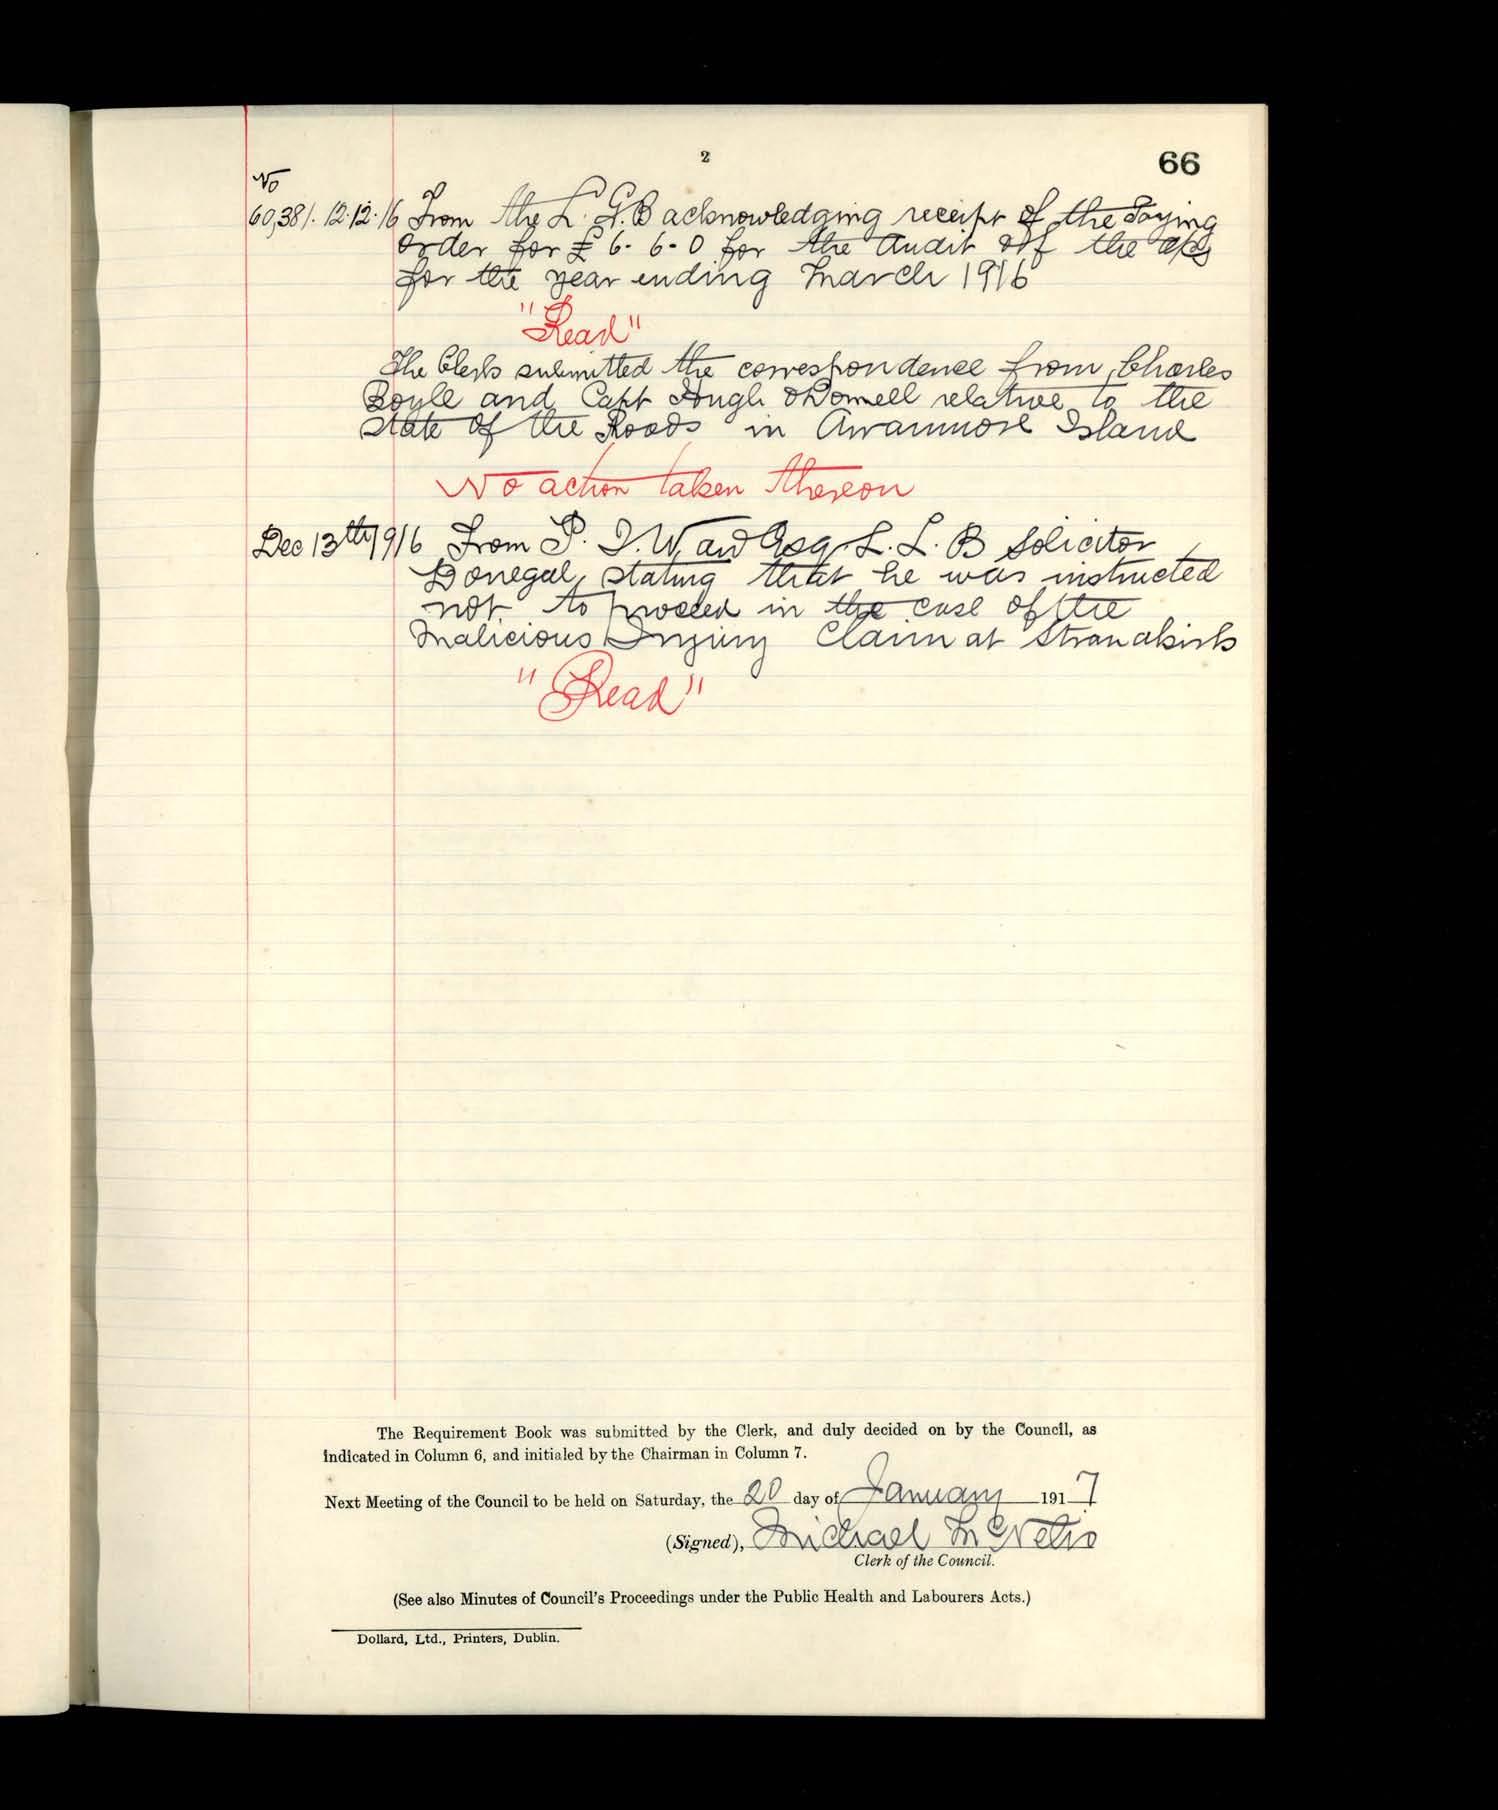 2
66
No
60,381. 12.12.16 From the L.G.B acknowledging receipt of the Paying
order for £6-6-0 for the Audit of the a/cs
for the year ending March 1916
"Read"
The Clerk submitted the correspondence from Charles
Boyle and Capt Hugh O'Donnell relative to the
state of the Roads in Arranmore Island
No action taken thereon
Dec 13th 1916 From P. J. Ward Esq L. L. B Solicitor
Donegal, stating that he was instructed
not to proceed in the case of the
Malicious Injury Claim at Stranakirk
"Read"
The Requirement Book was submitted by the Clerk, and duly decided on by the Council, as
indicated in Column 6, and initialed by the Chairman in Column 7.
Next Meeting of the Council to be held on Saturday, the 20 day of January 1917
(Signed), Michael
Clerk of the Council.
(See also Minutes of Council's Proceedings under the Public Health and Labourers Acts.)
Dollard, Ltd., Printers, Dublin.